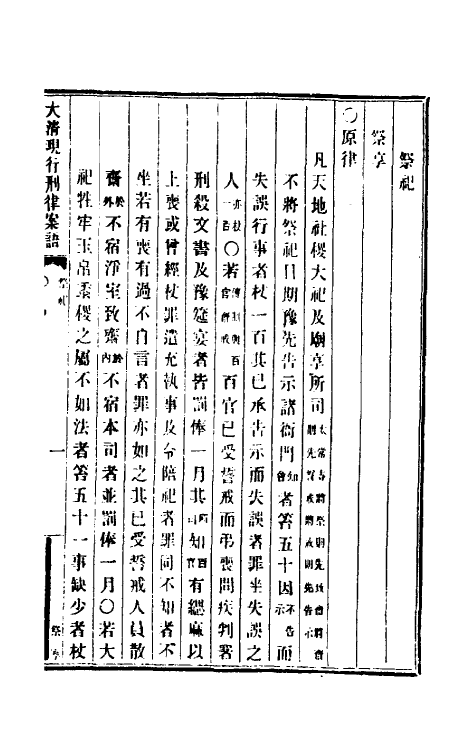 祭祀
祭享
〇原律
凡天地社稷大祀及廟享所司太常寺將祭則先致齋將齋則先誓戒將戒則先告示
不將祭祀日期豫先告示諸衙門知會者笞五十因不告示而
失誤行事者杖一百其已承告示而失誤者罪坐失誤之
人亦杖一百〇若傳制與百官齋戒百官已受誓戒而弔喪問疾判署
刑殺文書及豫筵宴者皆罰俸一月其所司知百官有緦麻以
上喪或曾經杖罪遣充執事及令陪祀者罪同不知者不
坐若有喪有過不自言者罪亦如之其已受誓戒人員散
齋於外不宿淨室致齋於內不宿本司者並罰俸一月〇若大
祀牲牢玉帛黍稷之屬不如法者笞五十一事缺少者杖
大清現行刑律案語 祭祀 一 祭享